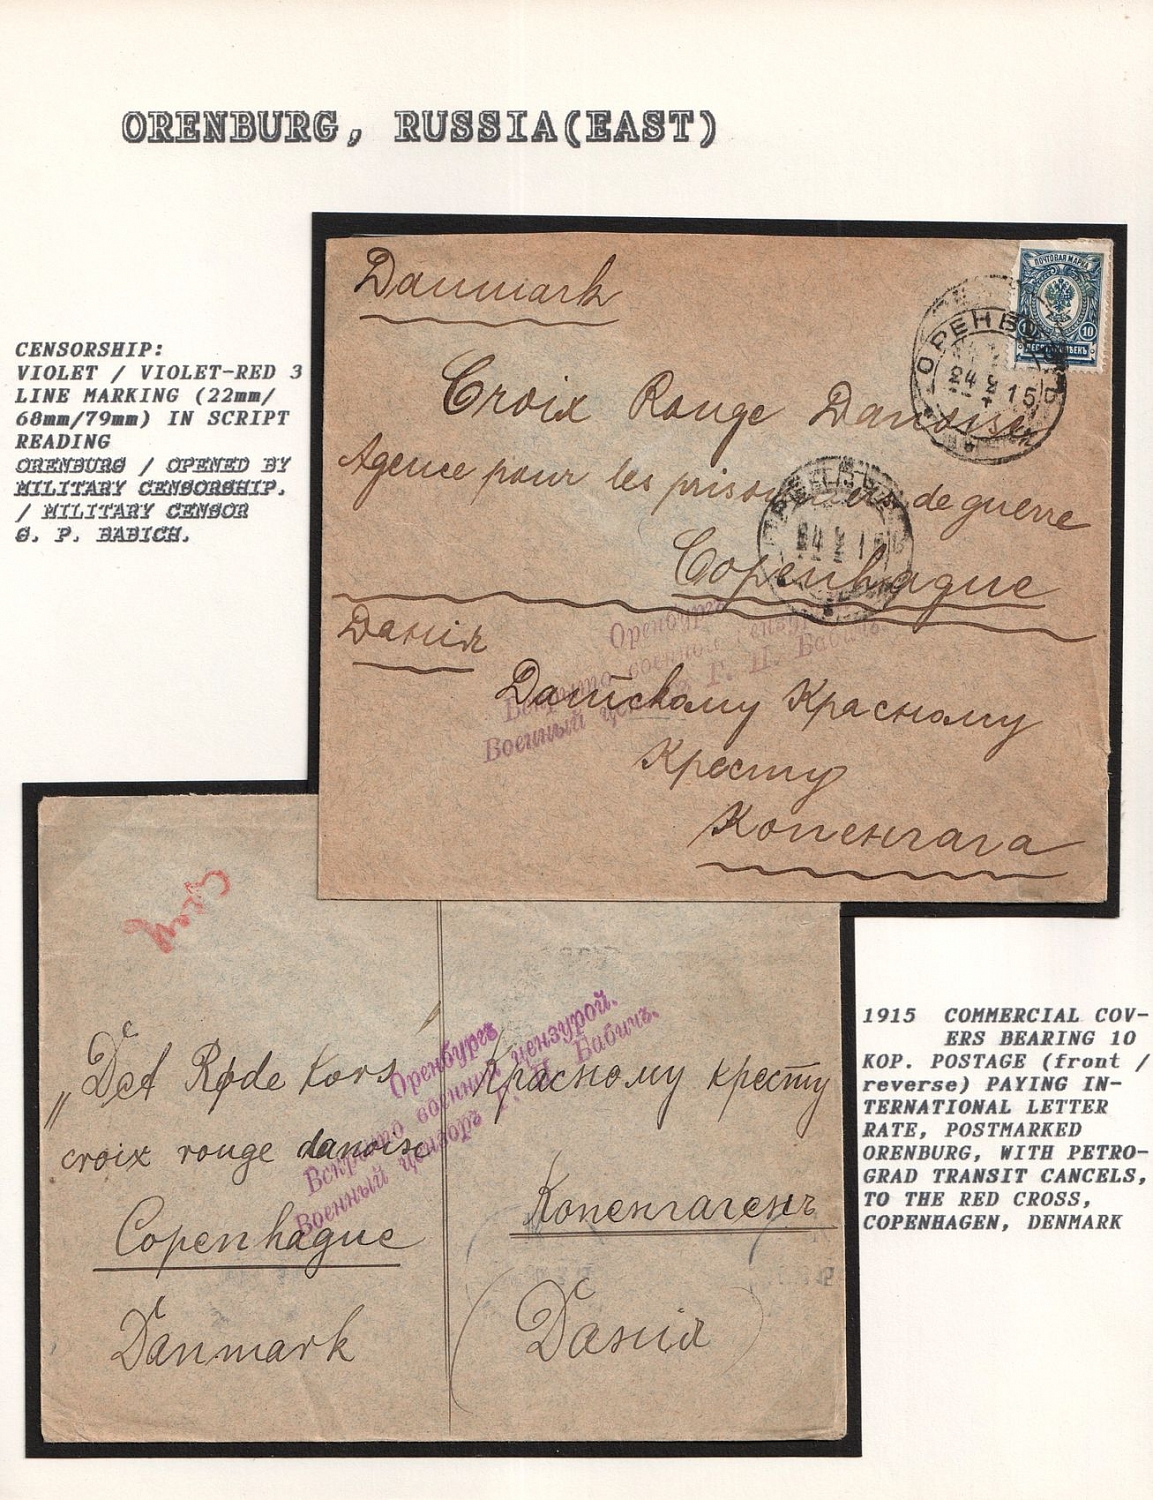 ORENBURG, RUSSIA(EAST)
CENSORSHIP:
VIOLET / VIOLET-RED 3
LINE MARKING (22mm/
68mm/79mm) IN SCRIPT
READING
ORENBURG / OPENED BY
MILITARY CENSORSHIP.
/ MILITARY CENSOR
G. P. BABICH.
Danmark
ПОЧТОВАЯ МАРКА
10
ОРЕНБУРГ
24 2 15
Croix Rouge Danoise
Agence pour les prisonniers de guerre
Copenhague
Данія
Оренбургъ
Вскрыто военной цензурой.
Военный цензоръ Г. П. Бабичъ.
Датскому Красному
Кресту
Копенгага
„Det Røde Kors
croix rouge danoise
Copenhague
Danmark
Оренбургъ
Вскрыто военной цензурой.
Военный цензоръ Г. П. Бабичъ.
Красному кресту
Копенгагенъ
(Данія)
1915 COMMERCIAL COV-
ERS BEARING 10
KOP. POSTAGE (front /
reverse) PAYING IN-
TERNATIONAL LETTER
RATE, POSTMARKED
ORENBURG, WITH PETRO-
GRAD TRANSIT CANCELS,
TO THE RED CROSS,
COPENHAGEN, DENMARK